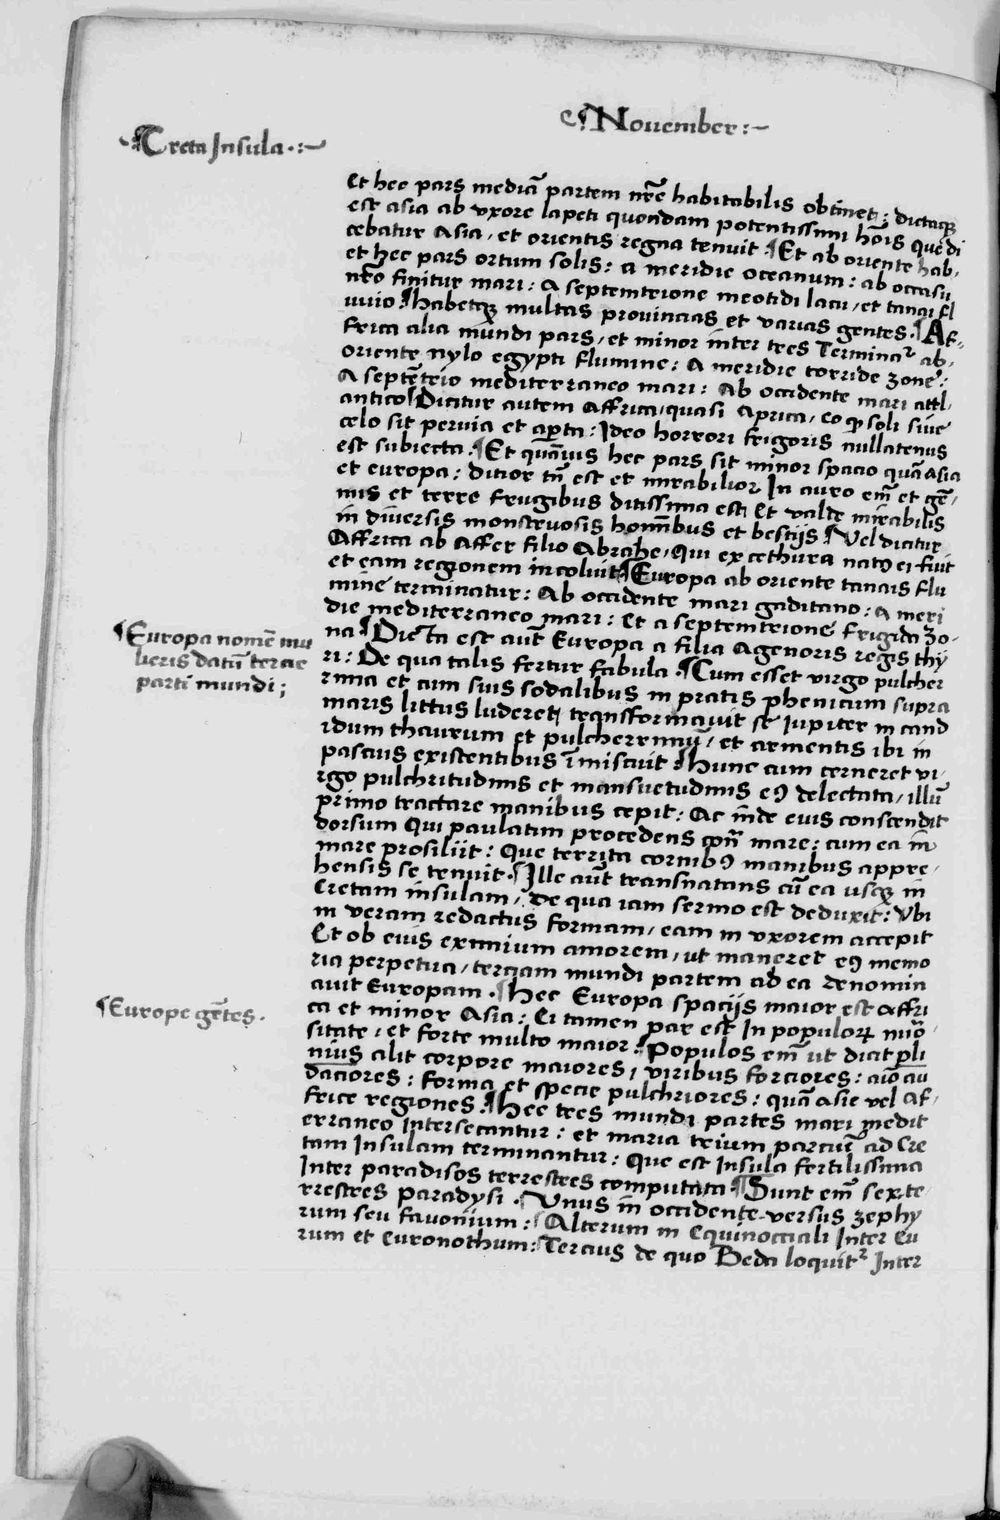 ¶November:~
Creta Insula·:~
Et hec pars mediā partem nr̄e habitabilis obtinet; dictaqꝫ
est asia ab vxore lapeti quondam potentissimi hōis que di
cebatur Asia, et orientis regna tenuit ¶Et ab oriente hab,
et hec pars ortum solis: a meridie oceanum: ab occasu
nr̄o finitur mari: A septemtrione meotidi lacu, et tanai fl
uuio ¶habetqꝫ multas prouincias et varias gentes. ¶Af-
frica alia mundi pars, et minor inter tres Terminaʳ ab,
oriente nylo egypti flumine: A meridie torride zone:
A septētrio mediterraneo mari: Ab occidente mari attl,
antico ¶Dicitur autem Affrica, quasi Aprica, eo ꝙ soli siue
celo sit peruia et aꝑta: Ideo horrori frigoris nullatenus
est subiecta. ¶Et quāuis hec pars sit minor spacio quā asia
et europa: ditior tn̄ est et mirabilior In auro em̄ et gē,
mis et terre frugibus ditissima est; Et valde mirabilis
in diuersis monstruosis hominibus et bestijs ¶Vel dicitur
Affrica ab Affer filio Abrahe, qui ex cethura natꝰ ei fuit
et eam regionem incoluit ¶Europa ab oriente tanais flu
mine terminatur: Ab occidente mari gaditano: A meri
die mediterraneo mari: Et a septemtrione frigida zo-
na ¶Dicta est aut̄ Europa a filia Agenoris regis thy
ri: De qua talis fertur fabula ¶Cum esset virgo pulcher
rima et cum suis sodalibus in pratis phenicum supra
maris littus luderet; transformauit se Iupiter in cand
idum thaurum et pulcherrimū, et armentis ibi in
pascuis existentibus īmiscuit ¶hunc cum cerneret vi,
rgo pulchritudinis et mansuetudinis eꝰ delectata, illū
primo tractare manibus cepit: Ac inde euis conscendit
dorsum Qui paulatim procedens con̄ mare: cum ea in
mare prosiliit: Que territa cornibꝰ manibus appre,
hensis se tenuit. ¶Ille aut̄ transnatans cū ea usqꝫ in
Cretam insulam, de qua iam sermo est deduxit: Vbi
in veram redactus formam, eam in vxorem accepit
Et ob euis eximium amorem, ut maneret eꝰ memo
ria perpetua, terciam mundi partem ad ea denomin
auit Europam. ¶hec Europa spacijs maior est affri
ca et minor Asia: Ei tamen par est In populoꝝ nūo,
sitate; et forte multo maior: ¶Populos em̄ ut dicit pli
nius alit corpore maiores; viribus forciores: aīo au
daciores: forma et specie pulchriores: quā asie vel Af,
frice regiones. ¶hec tres mundi partes mari medit
erraneo Intersecantur: et maria trium parciū ad Cre
tam Insulam terminantur: Que est Insula fertilissima
Inter paradisos terrestres computata ¶Sunt em̄ sex te
rrestres paradysi. ¶Vnus in occidente versus zephy
rum seu fauonium: ¶Alterum in Equinocciali Inter Eu
rum et Euronothum: ¶Tercius de quo Beda loquitʳ Inter
¶Europa nomē mu
lieris datū terae
parti mundi;
¶Europe gētes.